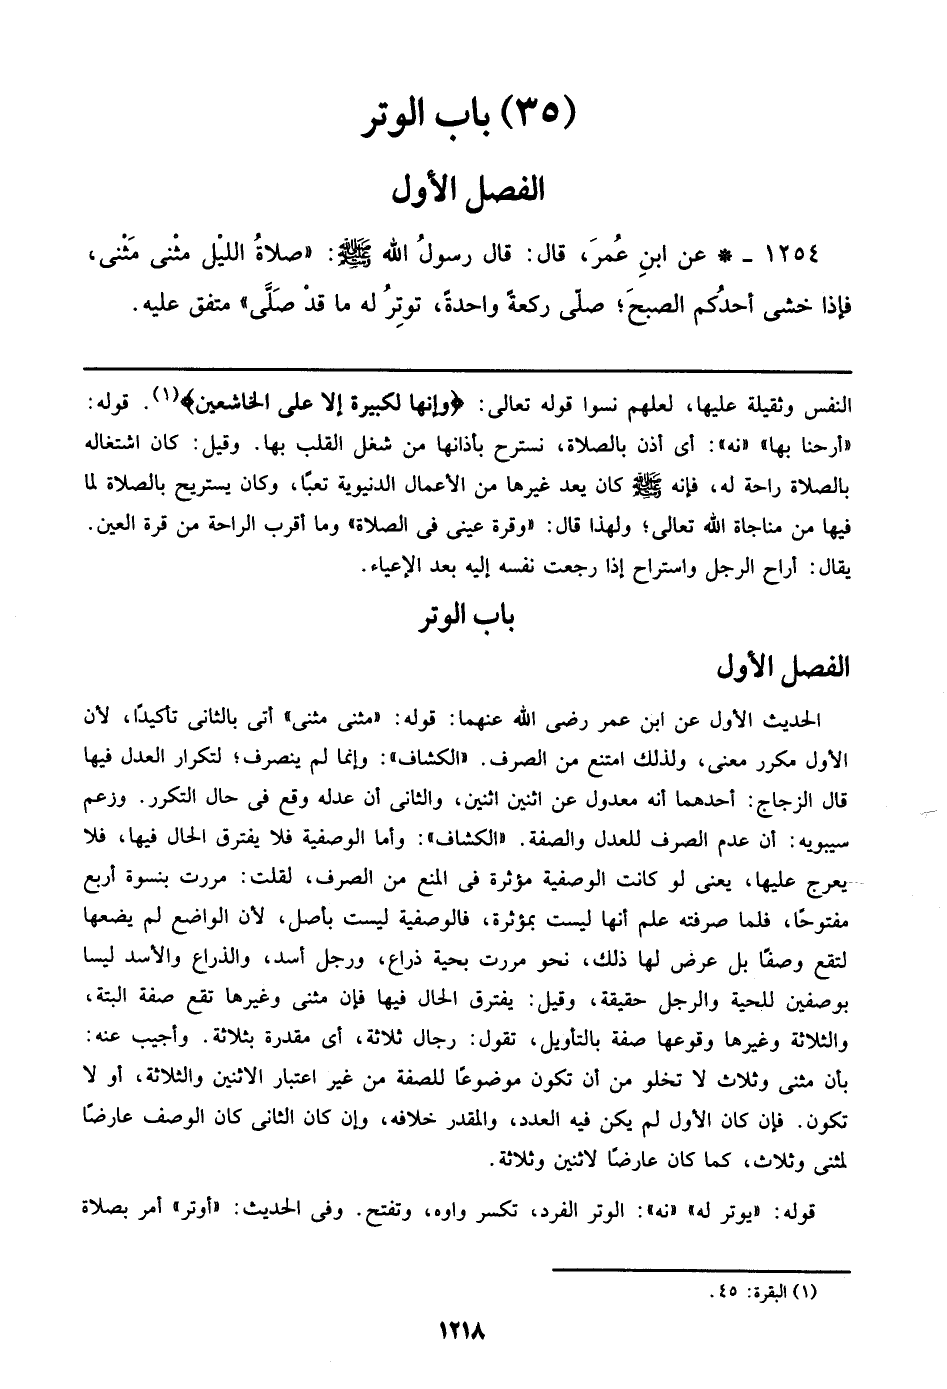 (٣٥) باب الوتر
الفصل الأول
١٢٥٤ ـ * عن ابنِ عُمرَ، قال: قال رسولُ الله ﷺ: «صلاةُ الليْل مثْنى مَثْنى،
فإذا خشى أحدُكم الصبحَ؛ صلّى ركعةً واحدةً، توتِرُ له ما قدْ صَلَّى» متفق عليه.
النفس وثقيلة عليها، لعلهم نسوا قوله تعالى: ﴿وإنها لكبيرة إلا على الخاشعين﴾(١). قوله:
«أرحنا بها» «نه»: أى أذن بالصلاة، نسترح بأذانها من شغل القلب بها. وقيل: كان اشتغاله
بالصلاة راحة له، فإنه ﷺ كان يعد غيرها من الأعمال الدنيوية تعبًا، وكان يستريح بالصلاة لما
فيها من مناجاة الله تعالى؛ ولهذا قال: «وقرة عينى فى الصلاة» وما أقرب الراحة من قرة العين.
يقال: أراح الرجل واستراح إذا رجعت نفسه إليه بعد الإعياء.
باب الوتر
الفصل الأول
الحديث الأول عن ابن عمر رضى الله عنهما: قوله: «مثنى مثنى» أتى بالثانى تأكيدًا، لأن
الأول مكرر معنى، ولذلك امتنع من الصرف. «الكشاف»: وإنما لم ينصرف؛ لتكرار العدل فيها
قال الزجاج: أحدهما أنه معدول عن اثنين اثنين، والثانى أن عدله وقع فى حال التكرر. وزعم
سيبويه: أن عدم الصرف للعدل والصفة. «الكشاف»: وأما الوصفية فلا يفترق الحال فيها، فلا
يعرج عليها، يعنى لو كانت الوصفية مؤثرة فى المنع من الصرف، لقلت: مررت بنسوة أربع
مفتوحًا، فلما صرفته علم أنها ليست بمؤثرة، فالوصفية ليست بأصل، لأن الواضع لم يضعها
لتقع وصفًا بل عرض لها ذلك، نحو مررت بحية ذراع، ورجل أسد، والذراع والأسد ليسا
بوصفين للحية والرجل حقيقة، وقيل: يفترق الحال فيها فإن مثنى وغيرها تقع صفة البتة،
والثلاثة وغيرها وقوعها صفة بالتأويل، تقول: رجال ثلاثة، أى مقدرة بثلاثة. وأجيب عنه:
بأن مثنى وثلاث لا تخلو من أن تكون موضوعًا للصفة من غير اعتبار الاثنين والثلاثة، أو لا
تكون. فإن كان الأول لم يكن فيه العدد، والمقدر خلافه، وإن كان الثانى كان الوصف عارضًا
لمثنى وثلاث، كما كان عارضًا لاثنين وثلاثة.
قوله: «يوتر له» «نه»: الوتر الفرد، تكسر واوه، وتفتح. وفى الحديث: «أوتر» أمر بصلاة
(١) البقرة: ٤٥.
١٢١٨